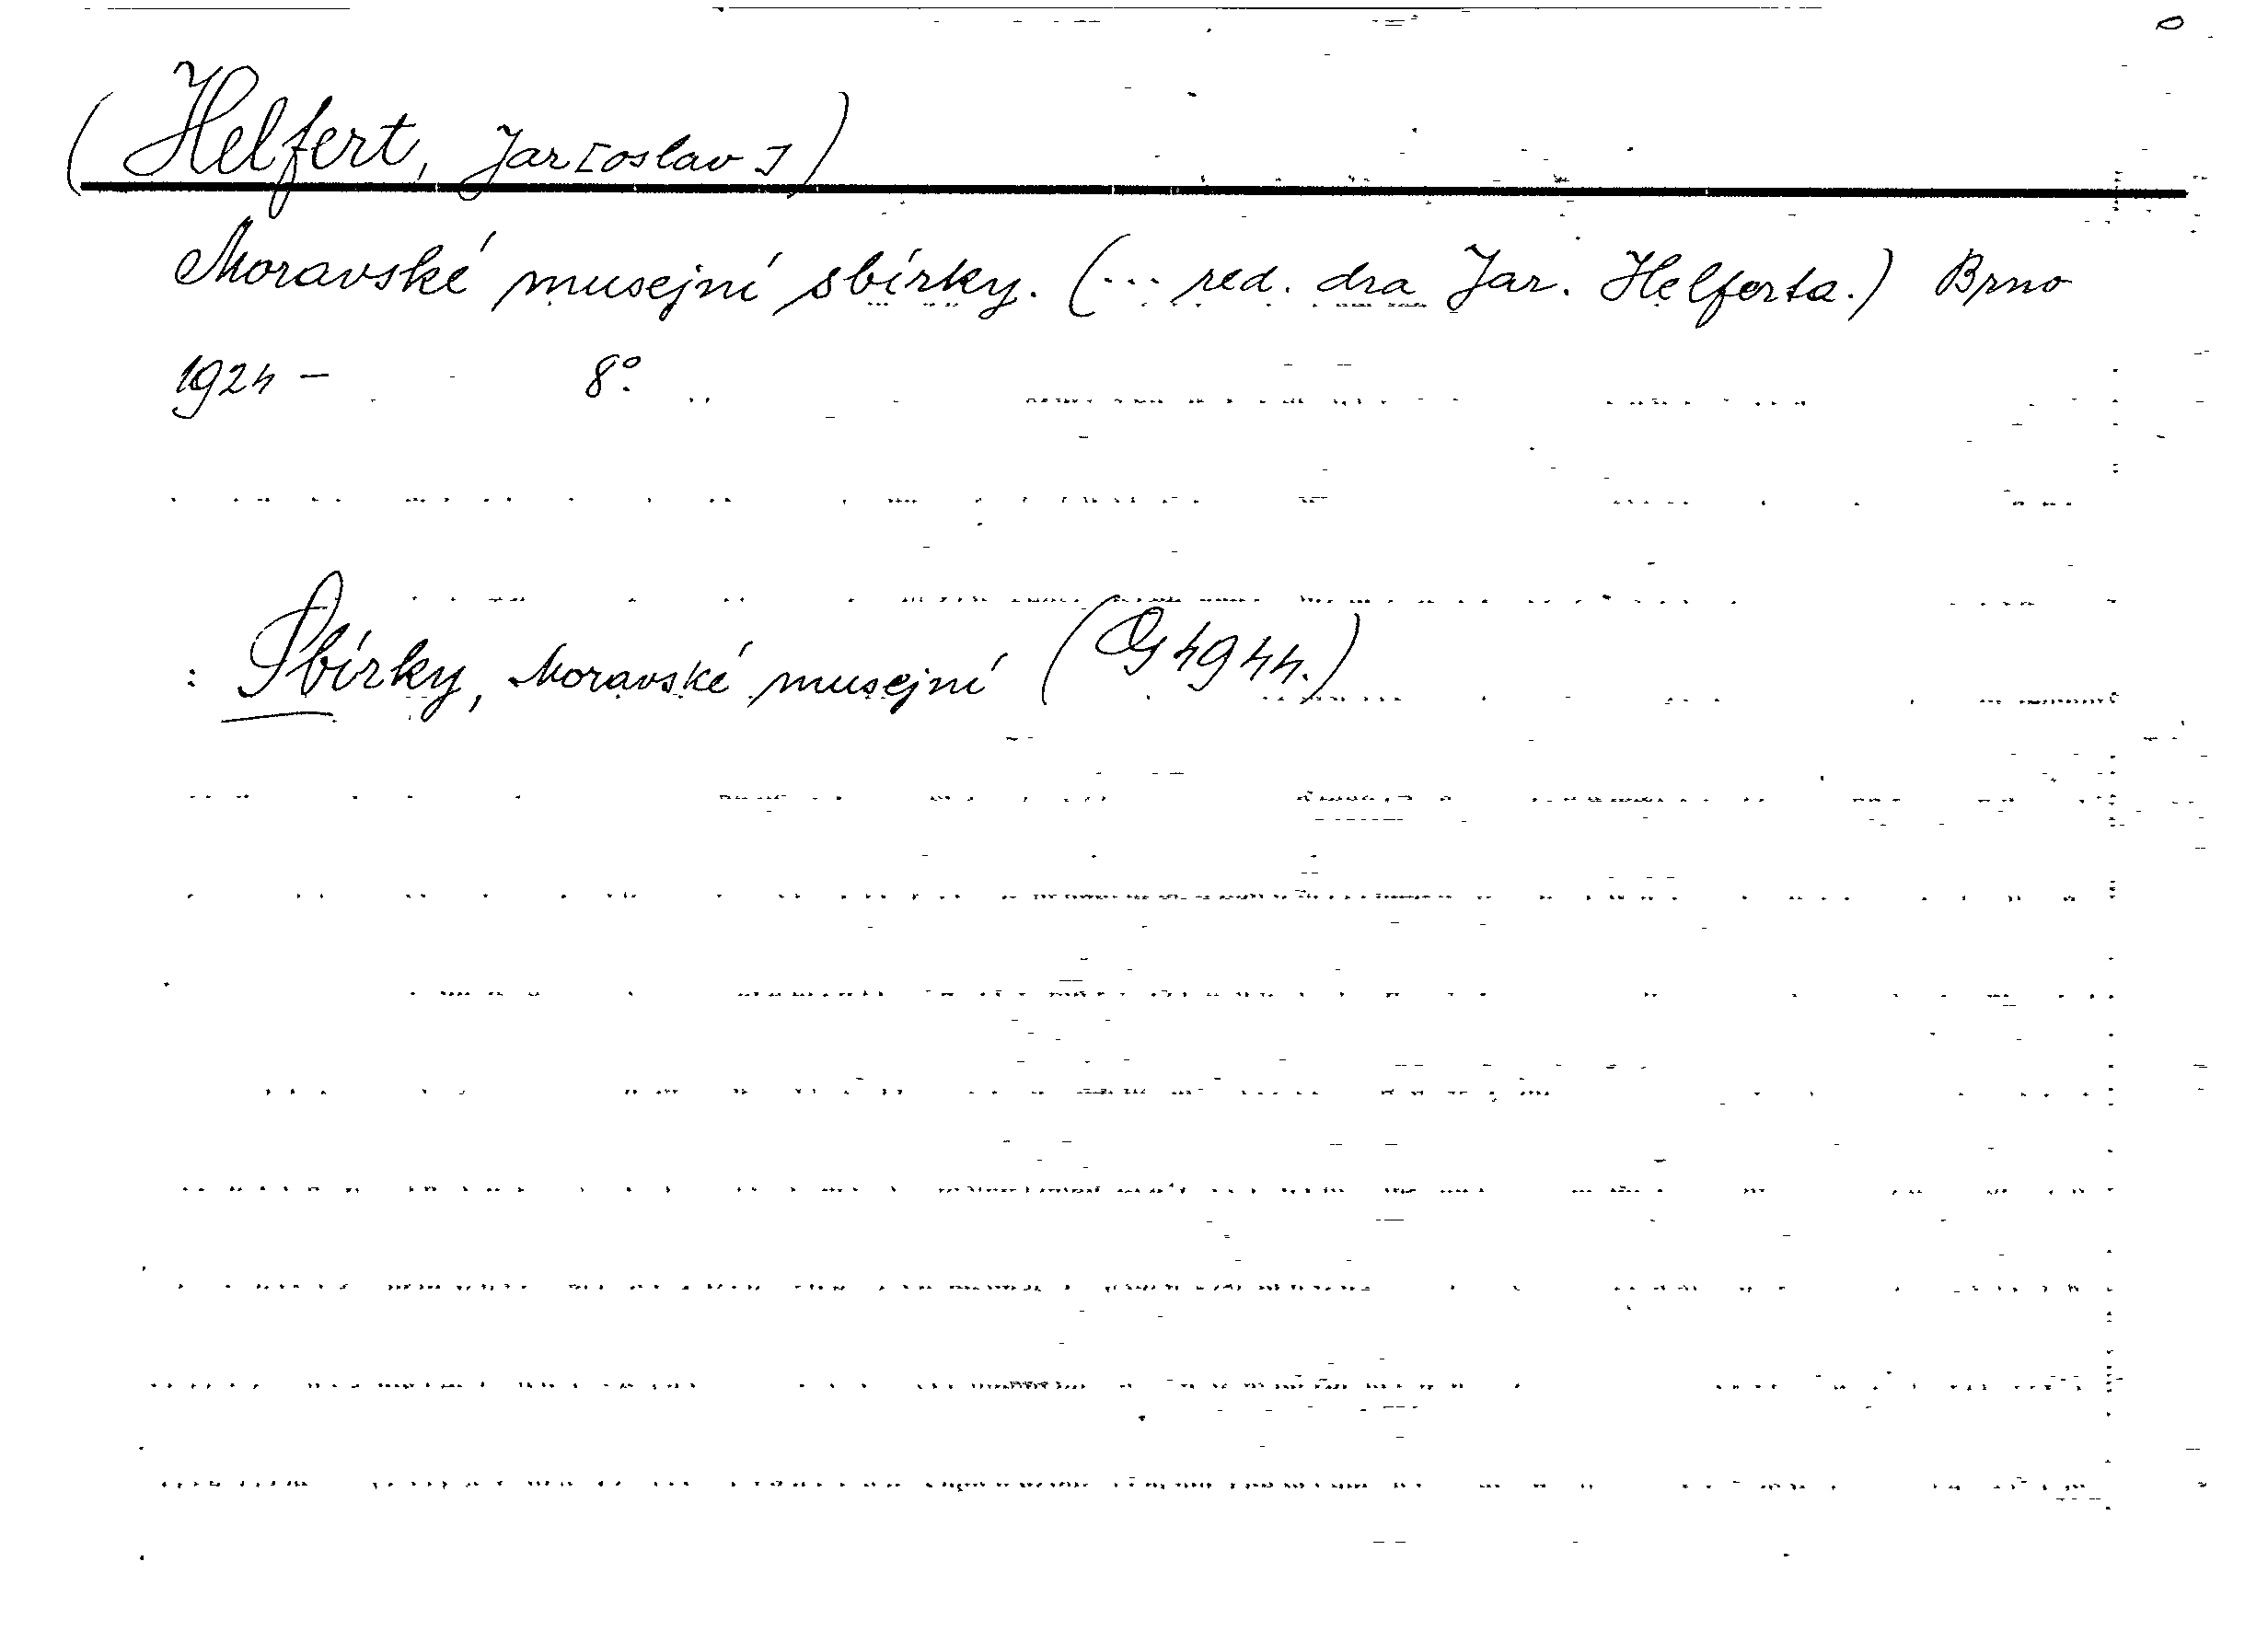 (Helfert, Jar[oslav])
Moravské musejní sbírky. (... red. dra Jar. Helferta.) Brno
1924 - 8°.
: Sbírky, Moravské musejní (G 4944.)